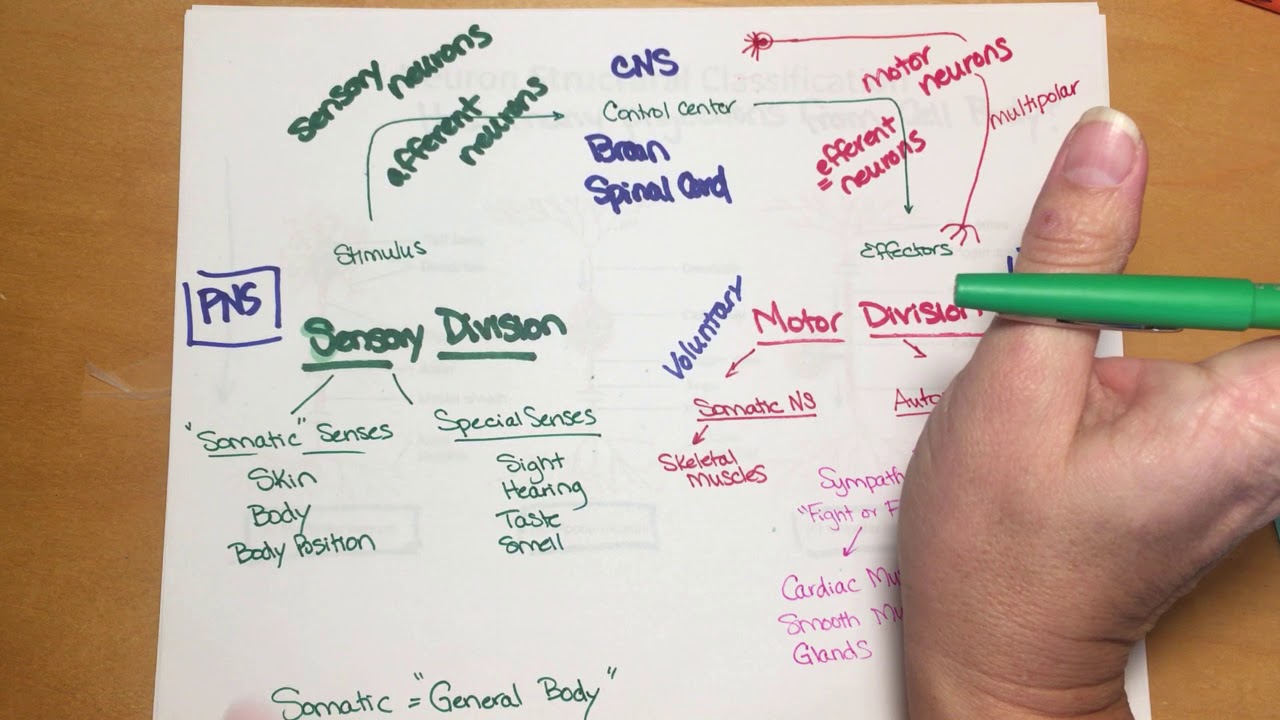 Sensory neurons
afferent
neurons
CNS
Control Center
Brain
Spinal Cord
motor
neurons
multipolar
= efferent
neurons
Stimulus
Effectors
PNS
Sensory Division
Voluntary
Motor Division
"Somatic" Senses
Skin
Body
Body Position
Special Senses
Sight
Hearing
Taste
Smell
Somatic NS
Skeletal
Muscles
Auto
Sympath
"Fight or F
Cardiac Mu
Smooth Mu
Glands
Somatic = "General Body"